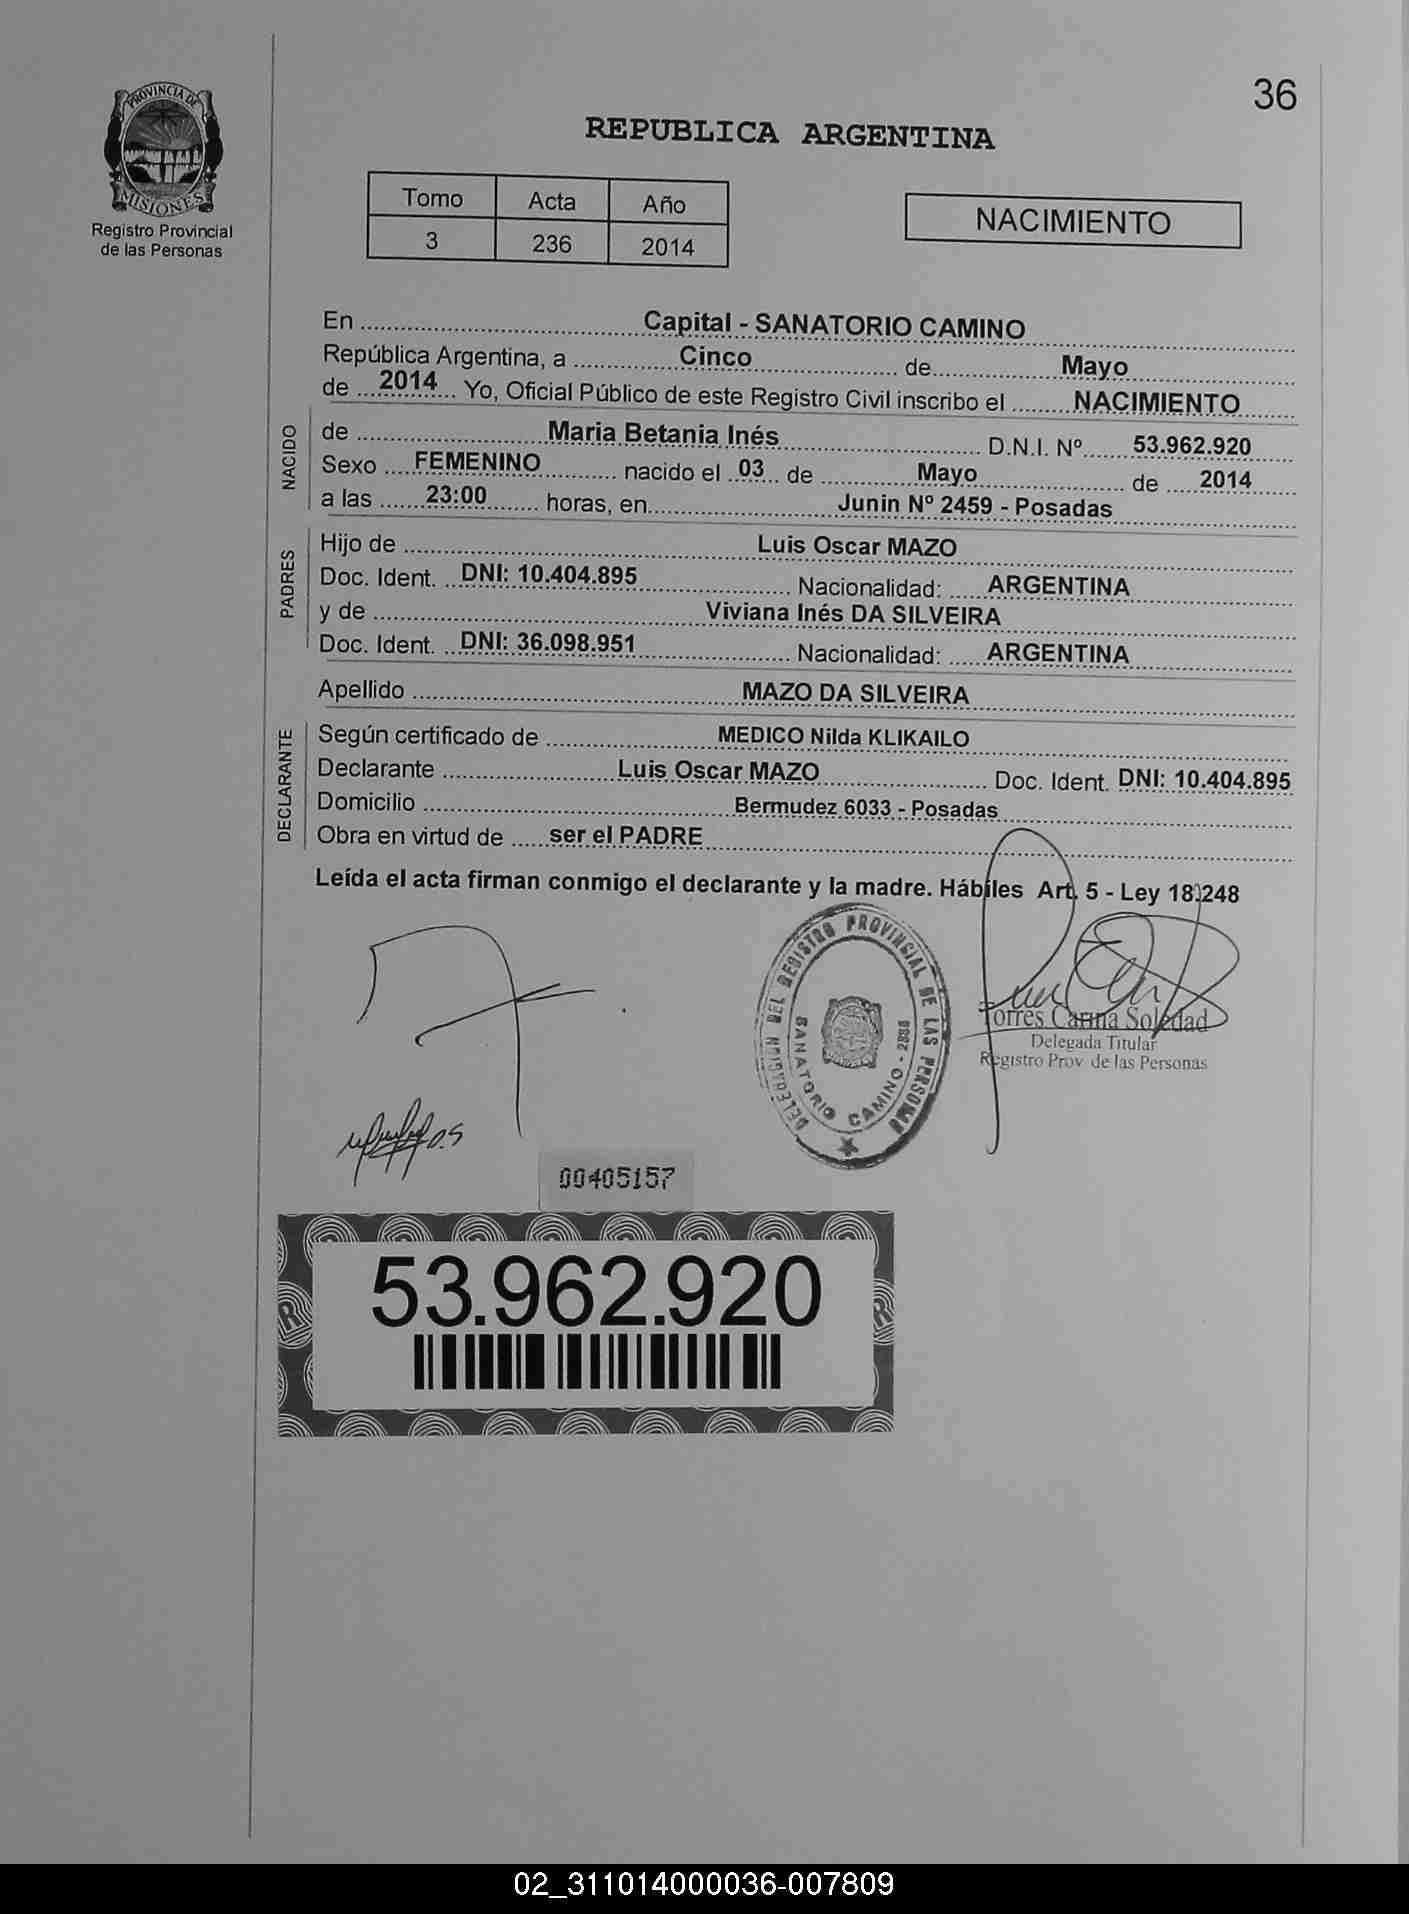 36
PROVINCIA DE
MISIONES
Registro Provincial
de las Personas
REPUBLICA ARGENTINA
Tomo Acta Año
3 236 2014
NACIMIENTO
En Capital - SANATORIO CAMINO
República Argentina, a Cinco de Mayo
de 2014 Yo, Oficial Público de este Registro Civil inscribo el NACIMIENTO
NACIDO
de Maria Betania Inés D.N.I. Nº 53.962.920
Sexo FEMENINO nacido el 03 de Mayo de 2014
a las 23:00 horas, en Junin Nº 2459 - Posadas
PADRES
Hijo de Luis Oscar MAZO
Doc. Ident. DNI: 10.404.895 Nacionalidad: ARGENTINA
y de Viviana Inés DA SILVEIRA
Doc. Ident. DNI: 36.098.951 Nacionalidad: ARGENTINA
Apellido MAZO DA SILVEIRA
DECLARANTE
Según certificado de MEDICO Nilda KLIKAILO
Declarante Luis Oscar MAZO Doc. Ident. DNI: 10.404.895
Domicilio Bermudez 6033 - Posadas
Obra en virtud de ser el PADRE
Leída el acta firman conmigo el declarante y la madre. Hábiles Art. 5 - Ley 18.248
DELEGACION DEL REGISTRO PROVINCIAL DE LAS PERSONAS
SANATORIO CAMINO
Torres Carina Soledad
Delegada Titular
Registro Prov de las Personas
00405157
53.962.920
02_311014000036-007809